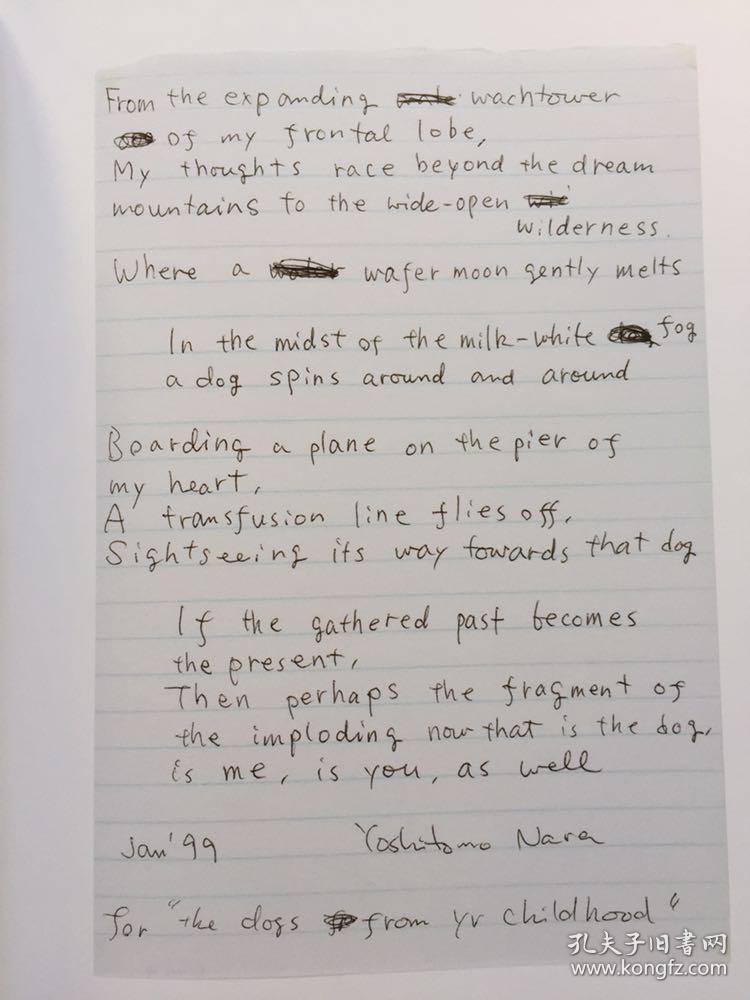 From the expanding wachtower
of my frontal lobe,
My thoughts race beyond the dream
mountains to the wide-open
wilderness.
Where a wafer moon gently melts
In the midst of the milk-white fog
a dog spins around and around
Boarding a plane on the pier of
my heart,
A transfusion line flies off,
Sightseeing its way towards that dog
If the gathered past becomes
the present,
Then perhaps the fragment of
the imploding now that is the dog,
is me, is you, as well
Jan' 99 Yoshitomo Nara
for "the dogs from yr childhood"
孔夫子旧書网
www.kongfz.com